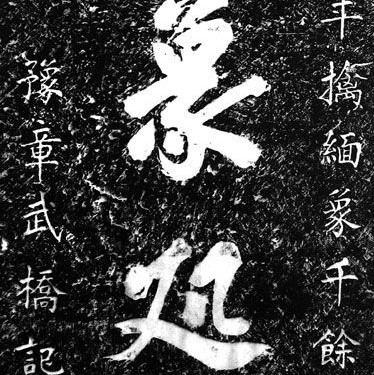 年擒緬象千餘
象処
豫章武橋記